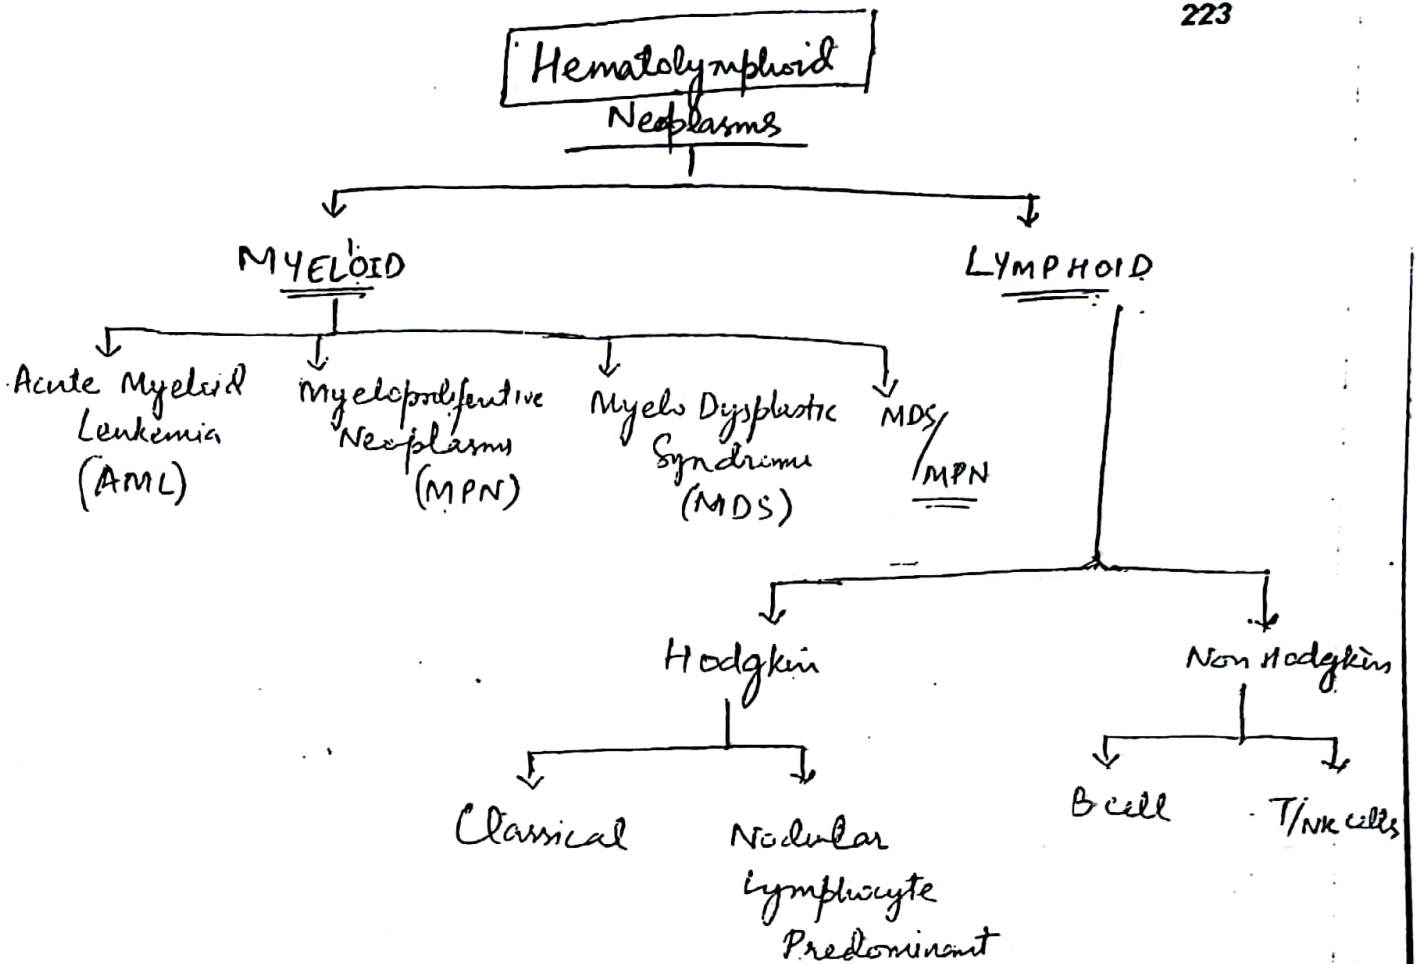 223
Hematolymphoid
Neoplasms
MYELOID
LYMPHOID
Acute Myeloid
Leukemia
(AML)
Myeloproliferative
Neoplasms
(MPN)
Myelo Dysplastic
Syndrome
(MDS)
MDS/
MPN
Hodgkin
Non Hodgkins
Classical
Nodular
Lymphocyte
Predominant
B cell
T/NK cells